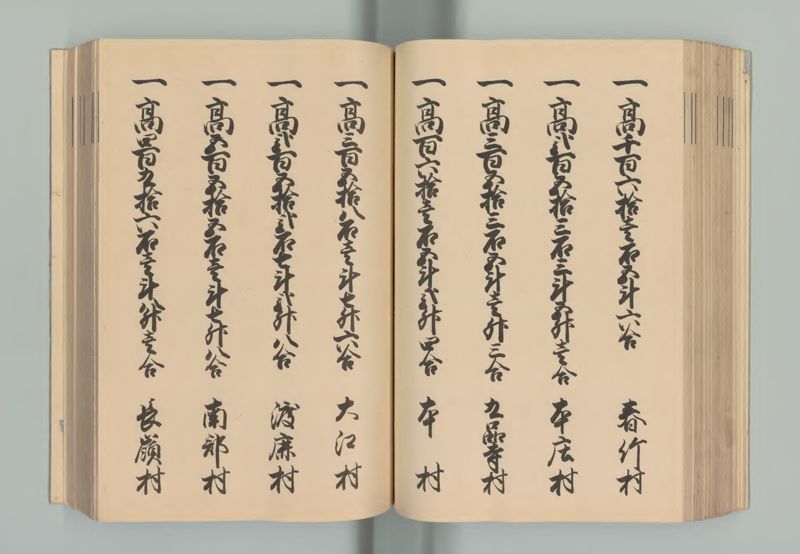 一高千百六拾壱石五斗六合 春竹村
一高弐百五拾三石三斗五升壱合 本庄村
一高三百五拾三石五斗壱升三合 九品寺村
一高百六拾壱石五斗弐升四合 本村
一高三百五拾八石壱斗七升六合 大江村
一高弐百五拾弐石七斗弐升八合 渡鹿村
一高五百五拾五石壱斗七升八合 南部村
一高四百九拾六石壱斗八升壱合 長嶺村